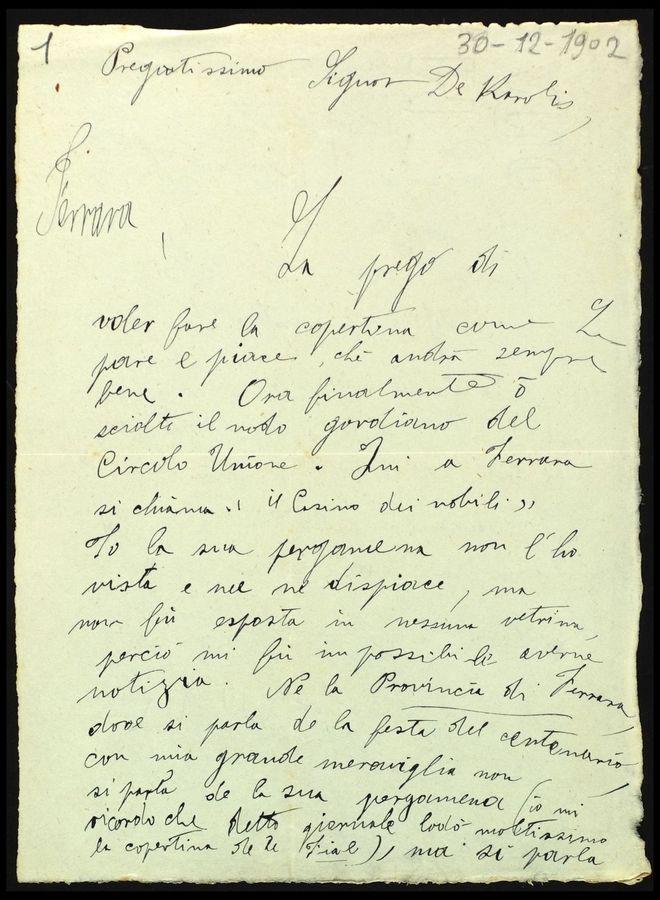 1
30-12-1902
Pregiatissimo Signor De Karolis,
Ferrara,
La prego di
voler fare la copertina come Le
pare e piace, che andrà sempre
bene. Ora finalmente ò
sciolto il nodo gordiano del
Circolo Unione. Qui a Ferrara
si chiama "il Casino dei nobili"
Io la sua pergamena non l'ho
vista e me ne dispiace, ma
non fu esposta in nessuna vetrina,
perciò mi fu impossibile averne
notizia. Ne la Provincia di Ferrara,
dove si parla de la festa del centenario
con mia grande meraviglia non
si parla de la sua pergamena (io mi
ricordo che detto giornale lodò moltissimo
la copertina de le Fiale), ma si parla